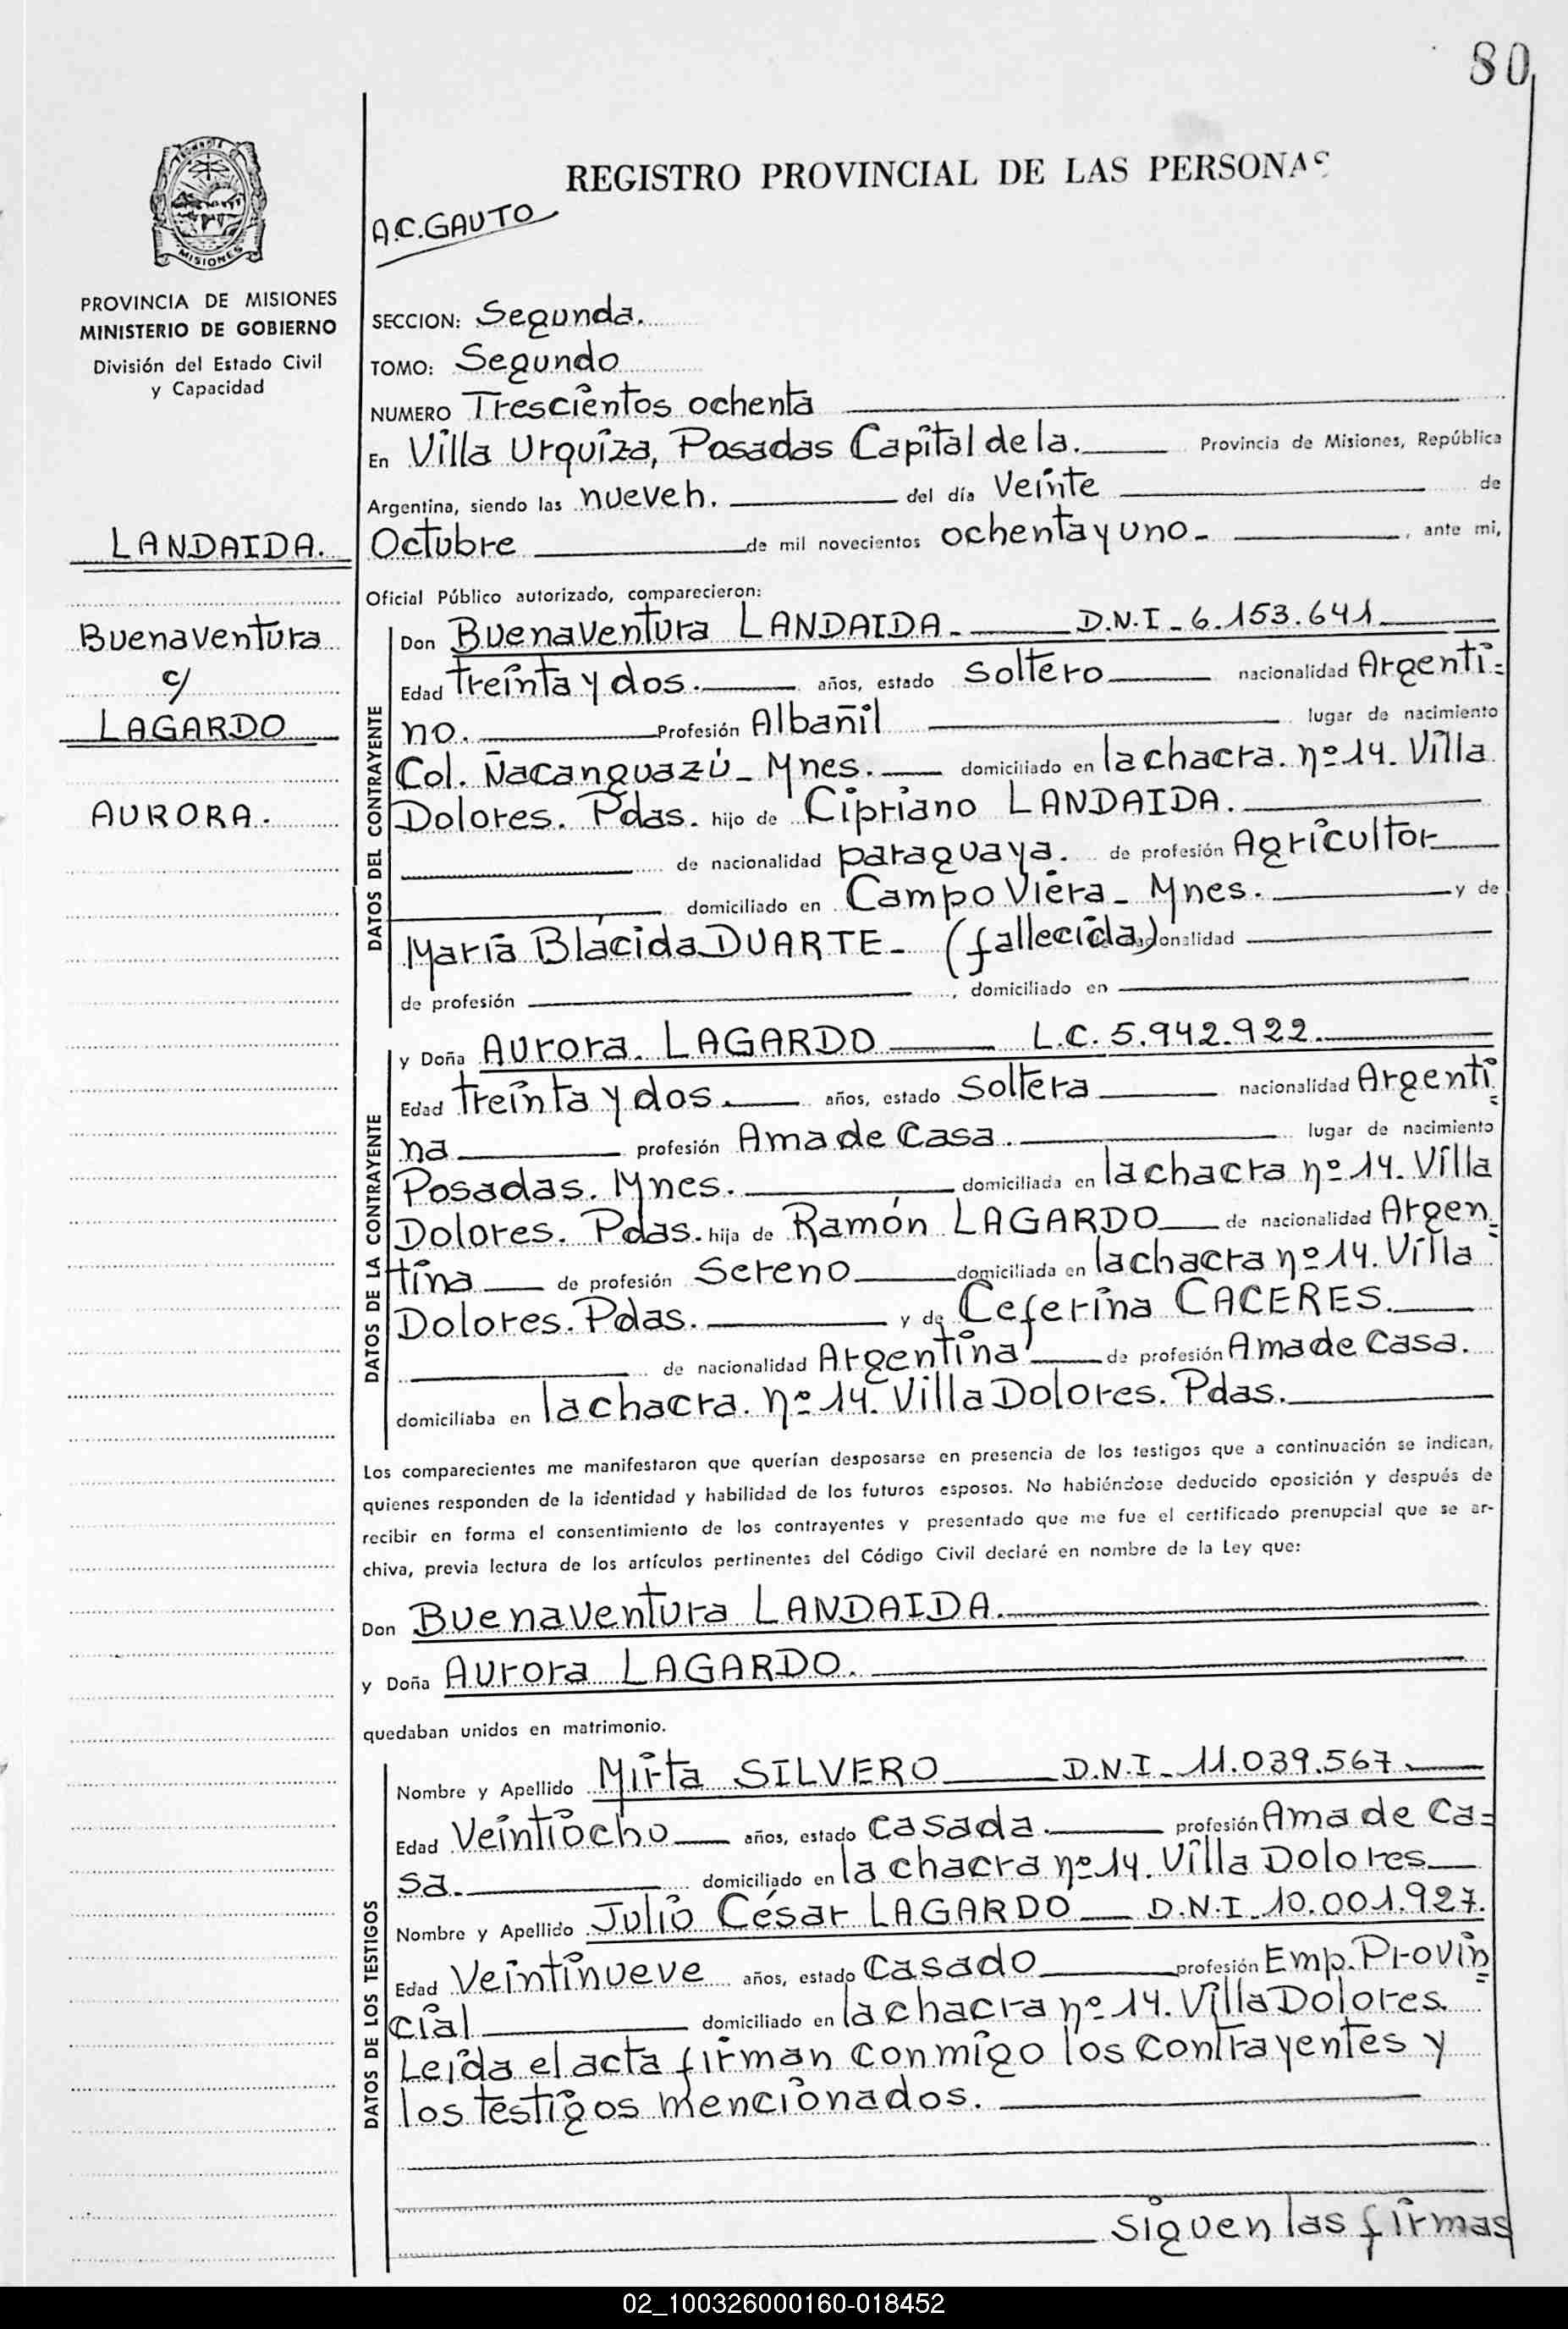 80
REGISTRO PROVINCIAL DE LAS PERSONAS
A.C. GAUTO
MISIONES
PROVINCIA DE MISIONES
MINISTERIO DE GOBIERNO
División del Estado Civil
y Capacidad
LANDAIDA.
Buenaventura
c/
LAGARDO
AURORA.
SECCION: Segunda.
TOMO: Segundo
NUMERO Trescientos ochenta
En Villa Urquiza, Posadas Capital de la. Provincia de Misiones, República
Argentina, siendo las nueve h. del día Veinte de
Octubre de mil novecientos ochenta y uno - , ante mi,
Oficial Público autorizado, comparecieron:
DATOS DEL CONTRAYENTE
Don Buenaventura LANDAIDA - D.N.I - 6.153.641
Edad treinta y dos. años, estado Soltero nacionalidad Argenti=
no. Profesión Albañil lugar de nacimiento
Col. Ñacanguazú - Mnes. domiciliado en la chacra. nº 14. Villa
Dolores. Pdas. hijo de Cipriano LANDAIDA.
de nacionalidad paraguaya. de profesión Agricultor
domiciliado en Campo Viera - Mnes. y de
María Blácida DUARTE - (fallecida) nacionalidad
de profesión , domiciliado en
DATOS DE LA CONTRAYENTE
y Doña Aurora. LAGARDO L.C. 5.942.922.
Edad treinta y dos. años, estado Soltera nacionalidad Argenti=
na profesión Ama de Casa. lugar de nacimiento
Posadas. Mnes. domiciliada en la chacra nº 14. Villa
Dolores. Pdas. hija de Ramón LAGARDO de nacionalidad Argen=
tina de profesión Sereno domiciliada en la chacra nº 14. Villa
Dolores. Pdas. y de Ceferina CACERES.
de nacionalidad Argentina de profesión Ama de Casa.
domiciliaba en la chacra. nº 14. Villa Dolores. Pdas.
Los comparecientes me manifestaron que querían desposarse en presencia de los testigos que a continuación se indican,
quienes responden de la identidad y habilidad de los futuros esposos. No habiéndose deducido oposición y después de
recibir en forma el consentimiento de los contrayentes y presentado que me fue el certificado prenupcial que se ar-
chiva, previa lectura de los artículos pertinentes del Código Civil declaré en nombre de la Ley que:
Don Buenaventura LANDAIDA.
y Doña Aurora LAGARDO.
quedaban unidos en matrimonio.
DATOS DE LOS TESTIGOS
Nombre y Apellido Mirta SILVERO D.N.I - 11.039.567.
Edad Veintiocho años, estado casada. profesión Ama de Ca=
sa. domiciliado en la chacra nº 14. Villa Dolores
Nombre y Apellido Julio César LAGARDO D.N.I 10.001.927.
Edad Veintinueve años, estado Casado profesión Emp. Provin=
cial domiciliado en la chacra nº 14. Villa Dolores.
Leída el acta firman conmigo los contrayentes y
los testigos mencionados.
Siguen las firmas
02_100326000160-018452